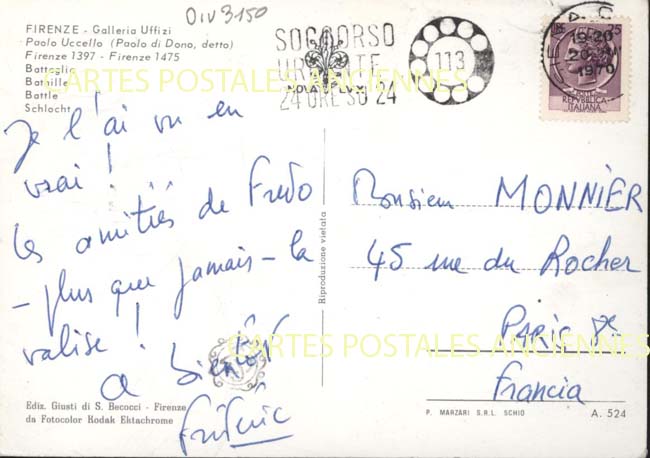 OIV 3150
FIRENZE - Galleria Uffizi
Paolo Uccello (Paolo di Dono, detto)
Firenze 1397 - Firenze 1475
Battaglia
Bataille
Battle
Schlacht
SOCCORSO
URGENTE
24 ORE SU 24
113
19-20
1970
25
REPVBBLICA
ITALIANA
CARTES POSTALES ANCIENNES
Je l'ai vu en
vrai !
les amitiés de Fredo
- plus que jamais - la
valise !
a bientôt
Frédéric
Riproduzione vietata
Monsieur MONNIER
45 rue du Rocher
PARIS 8e
Francia
CARTES POSTALES ANCIENNES
Ediz. Giusti di S. Becocci - Firenze
da Fotocolor Kodak Ektachrome
P. MARZARI S.R.L. SCHIO
A. 524